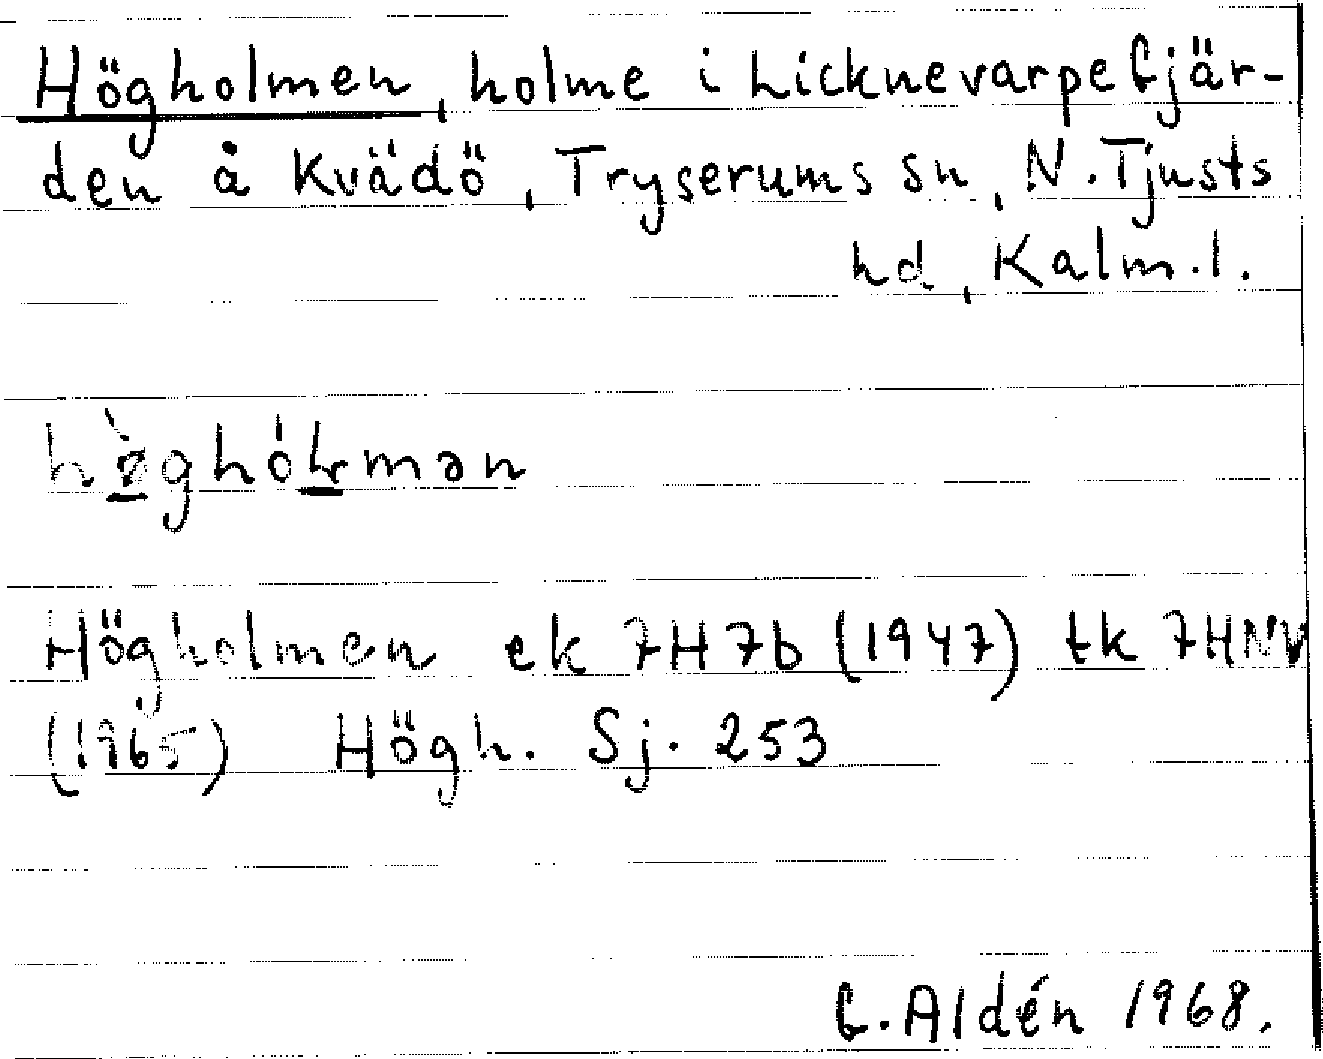 Högholmen, holme i Licknevarpefjär-
den å Kvädö, Tryserums sn, N. Tjusts
hd, Kalm. l.
Högholmen ek 7H7b (1947) tk 7HNV
(1965) Högh. Sj. 253
G. Aldén 1968.